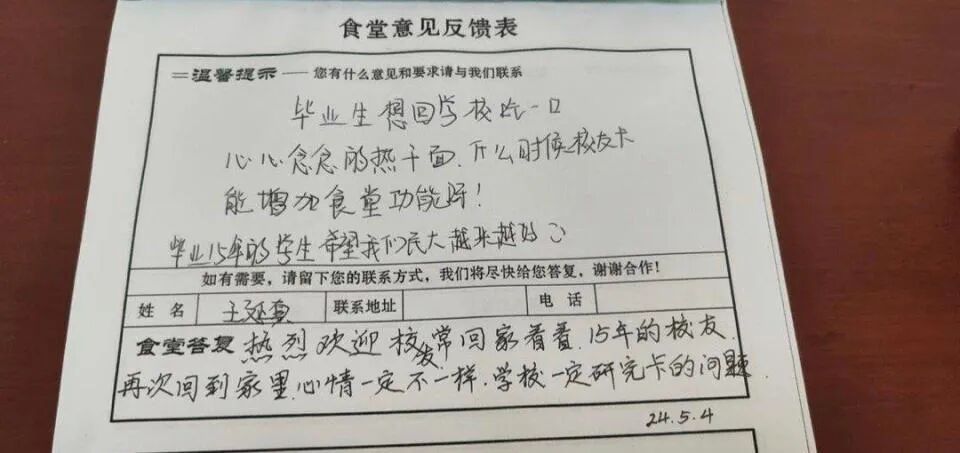 食堂意见反馈表
温馨提示——您有什么意见和要求请与我们联系
毕业生想回学校吃一口
心心念念的热干面.什么时候校友卡
能增加食堂功能呀!
毕业15年的学生希望我们民大越来越好
如有需要，请留下您的联系方式，我们将尽快给您答复，谢谢合作！
姓名 王 联系地址 电话
食堂答复 热烈欢迎校友常回家看看.15年的校友
再次回到家里心情一定不一样.学校一定研究卡的问题.
24.5.4